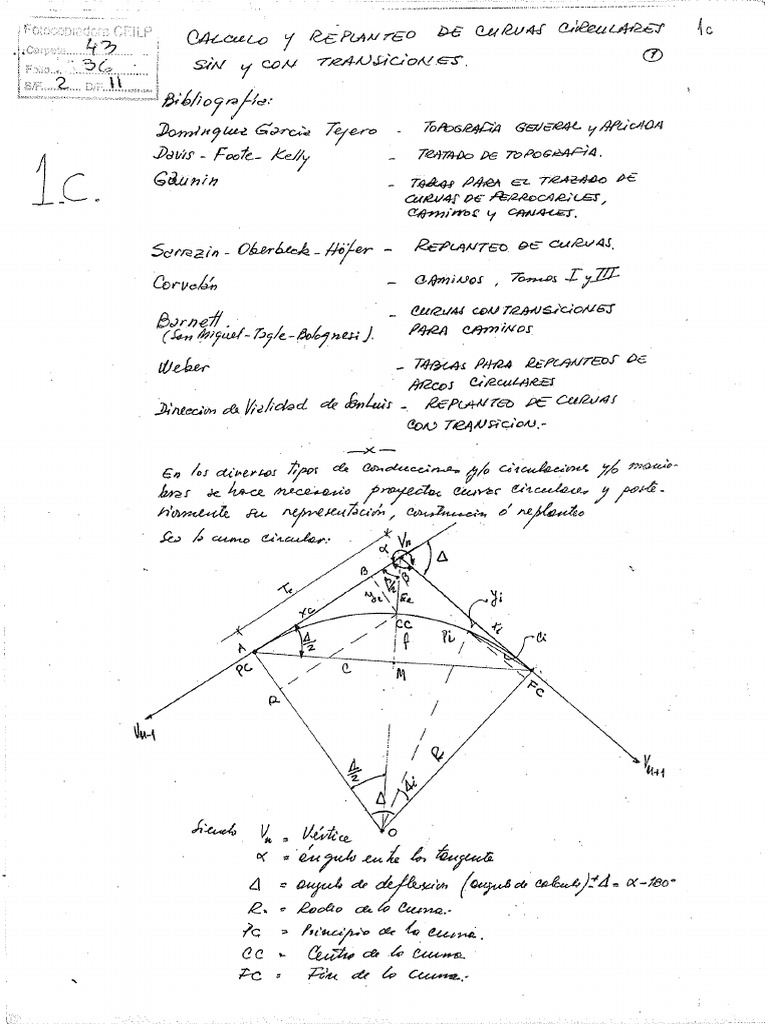 Fotocopiadora CEILP
Carpeta 43
Folio 36
S/F 2 D/F 11
1c
CALCULO y REPLANTEO DE CURVAS CIRCULARES
SIN y CON TRANSICIONES.
1
1.C.
Bibliografía:
Dominguez Garcia Tejero - TOPOGRAFIA GENERAL y APLICADA
Davis - Foote - Kelly - TRATADO DE TOPOGRAFIA.
Gaunin - TABLAS PARA EL TRAZADO DE
CURVAS DE FERROCARILES,
CAMINOS y CANALES.
Sarrazin - Oberbeck - Höfer - REPLANTEO DE CURVAS.
Corvalán - CAMINOS, Tomos I y III
Barnett. - CURVAS CON TRANSICIONES
(San Miguel - Tagle - Bolognesi). PARA CAMINOS
Weber - TABLAS PARA REPLANTEOS DE
ARCOS CIRCULARES
Direccion de Vialidad de San Luis - REPLANTEO DE CURVAS
CON TRANSICION.-
—x—
En los diversos tipos de conducciones y/o circulaciones y/o manio-
bras se hace necesario proyectar curvas circulares y poste-
riormente su representación, construccion ó replanteo
Sea la curva circular:
Vn
α
Δ
B
Δ/2
β
Te
yc
Ec
xc
yi
xi
CC
Pi
ci
A
Δ/2
f
PC
C
M
FC
R
R
Vn-1
Vn+1
Δ/2
Δ
Δi
O
Siendo Vn = Vértice
α = ángulo entre las tangente
Δ = angulo de deflexion (angulo de calculo) ± Δ = α - 180°
R. = Radio de la curva.-
PC = Principio de la curva.
CC = Centro de la curva
FC = Fin de la curva.-